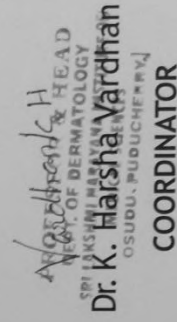 PROFESSOR & HEAD
DEPT. OF DERMATOLOGY
SRI LAKSHMI NARAYANA INSTITUTE OF
SCIENCES
OSUDU, PUDUCHERRY.
Dr. K. Harsha Vardhan
COORDINATOR